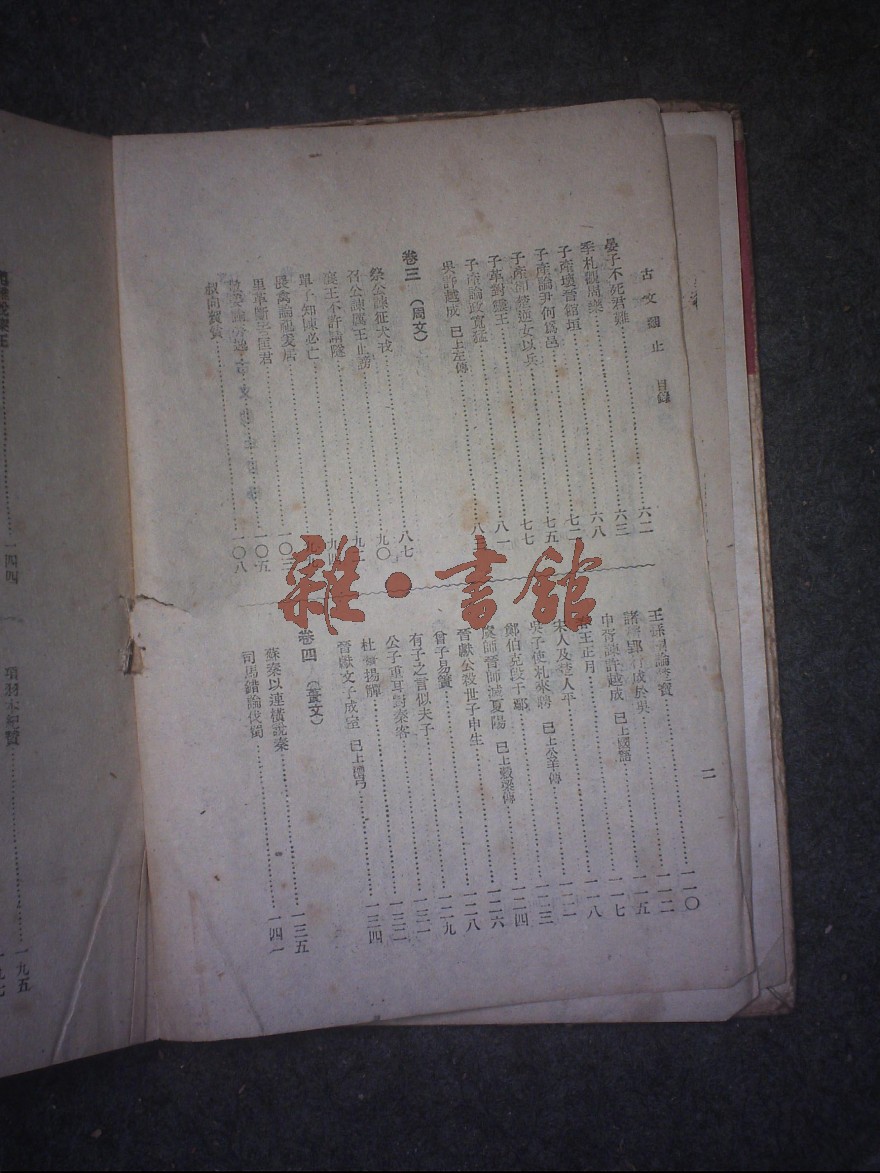 古文觀止 目錄
晏子不死君難 六二
季札觀周樂 六三
子產壞晉館垣 六八
子產論尹何爲邑 七二
子產卻楚逆女以兵 七五
子革對靈王 七七
子產論政寬猛 八一
吳許越成 已上左傳 八三
卷三 (周文)
祭公諫征犬戎 八七
召公諫厲王止謗 九〇
襄王不許請隧 九二
單子知陳必亡
展禽論祀爰居
里革斷罟匡君 一〇三
敬姜論勞逸 一〇五
叔向賀貧 一〇八
二
王孫圉論楚寶 一一〇
諸稽郢行成於吳 一一二
申胥諫許越成 已上國語 一一五
春王正月 一一七
宋人及楚人平 一一八
吳子使札來聘 已上公羊傳 一二一
鄭伯克段于鄢 一二三
虞師晉師滅夏陽 已上穀梁傳 一二四
晉獻公殺世子申生 一二六
曾子易簀 一二八
有子之言似夫子 一二九
公子重耳對秦客 一三一
杜蕢揚觶 一三二
晉獻文子成室 已上檀弓 一三四
卷四
蘇秦以連橫說秦 一三五
司馬錯論伐蜀 一四一
一四四
項羽本紀贊
一九五
雜·書館